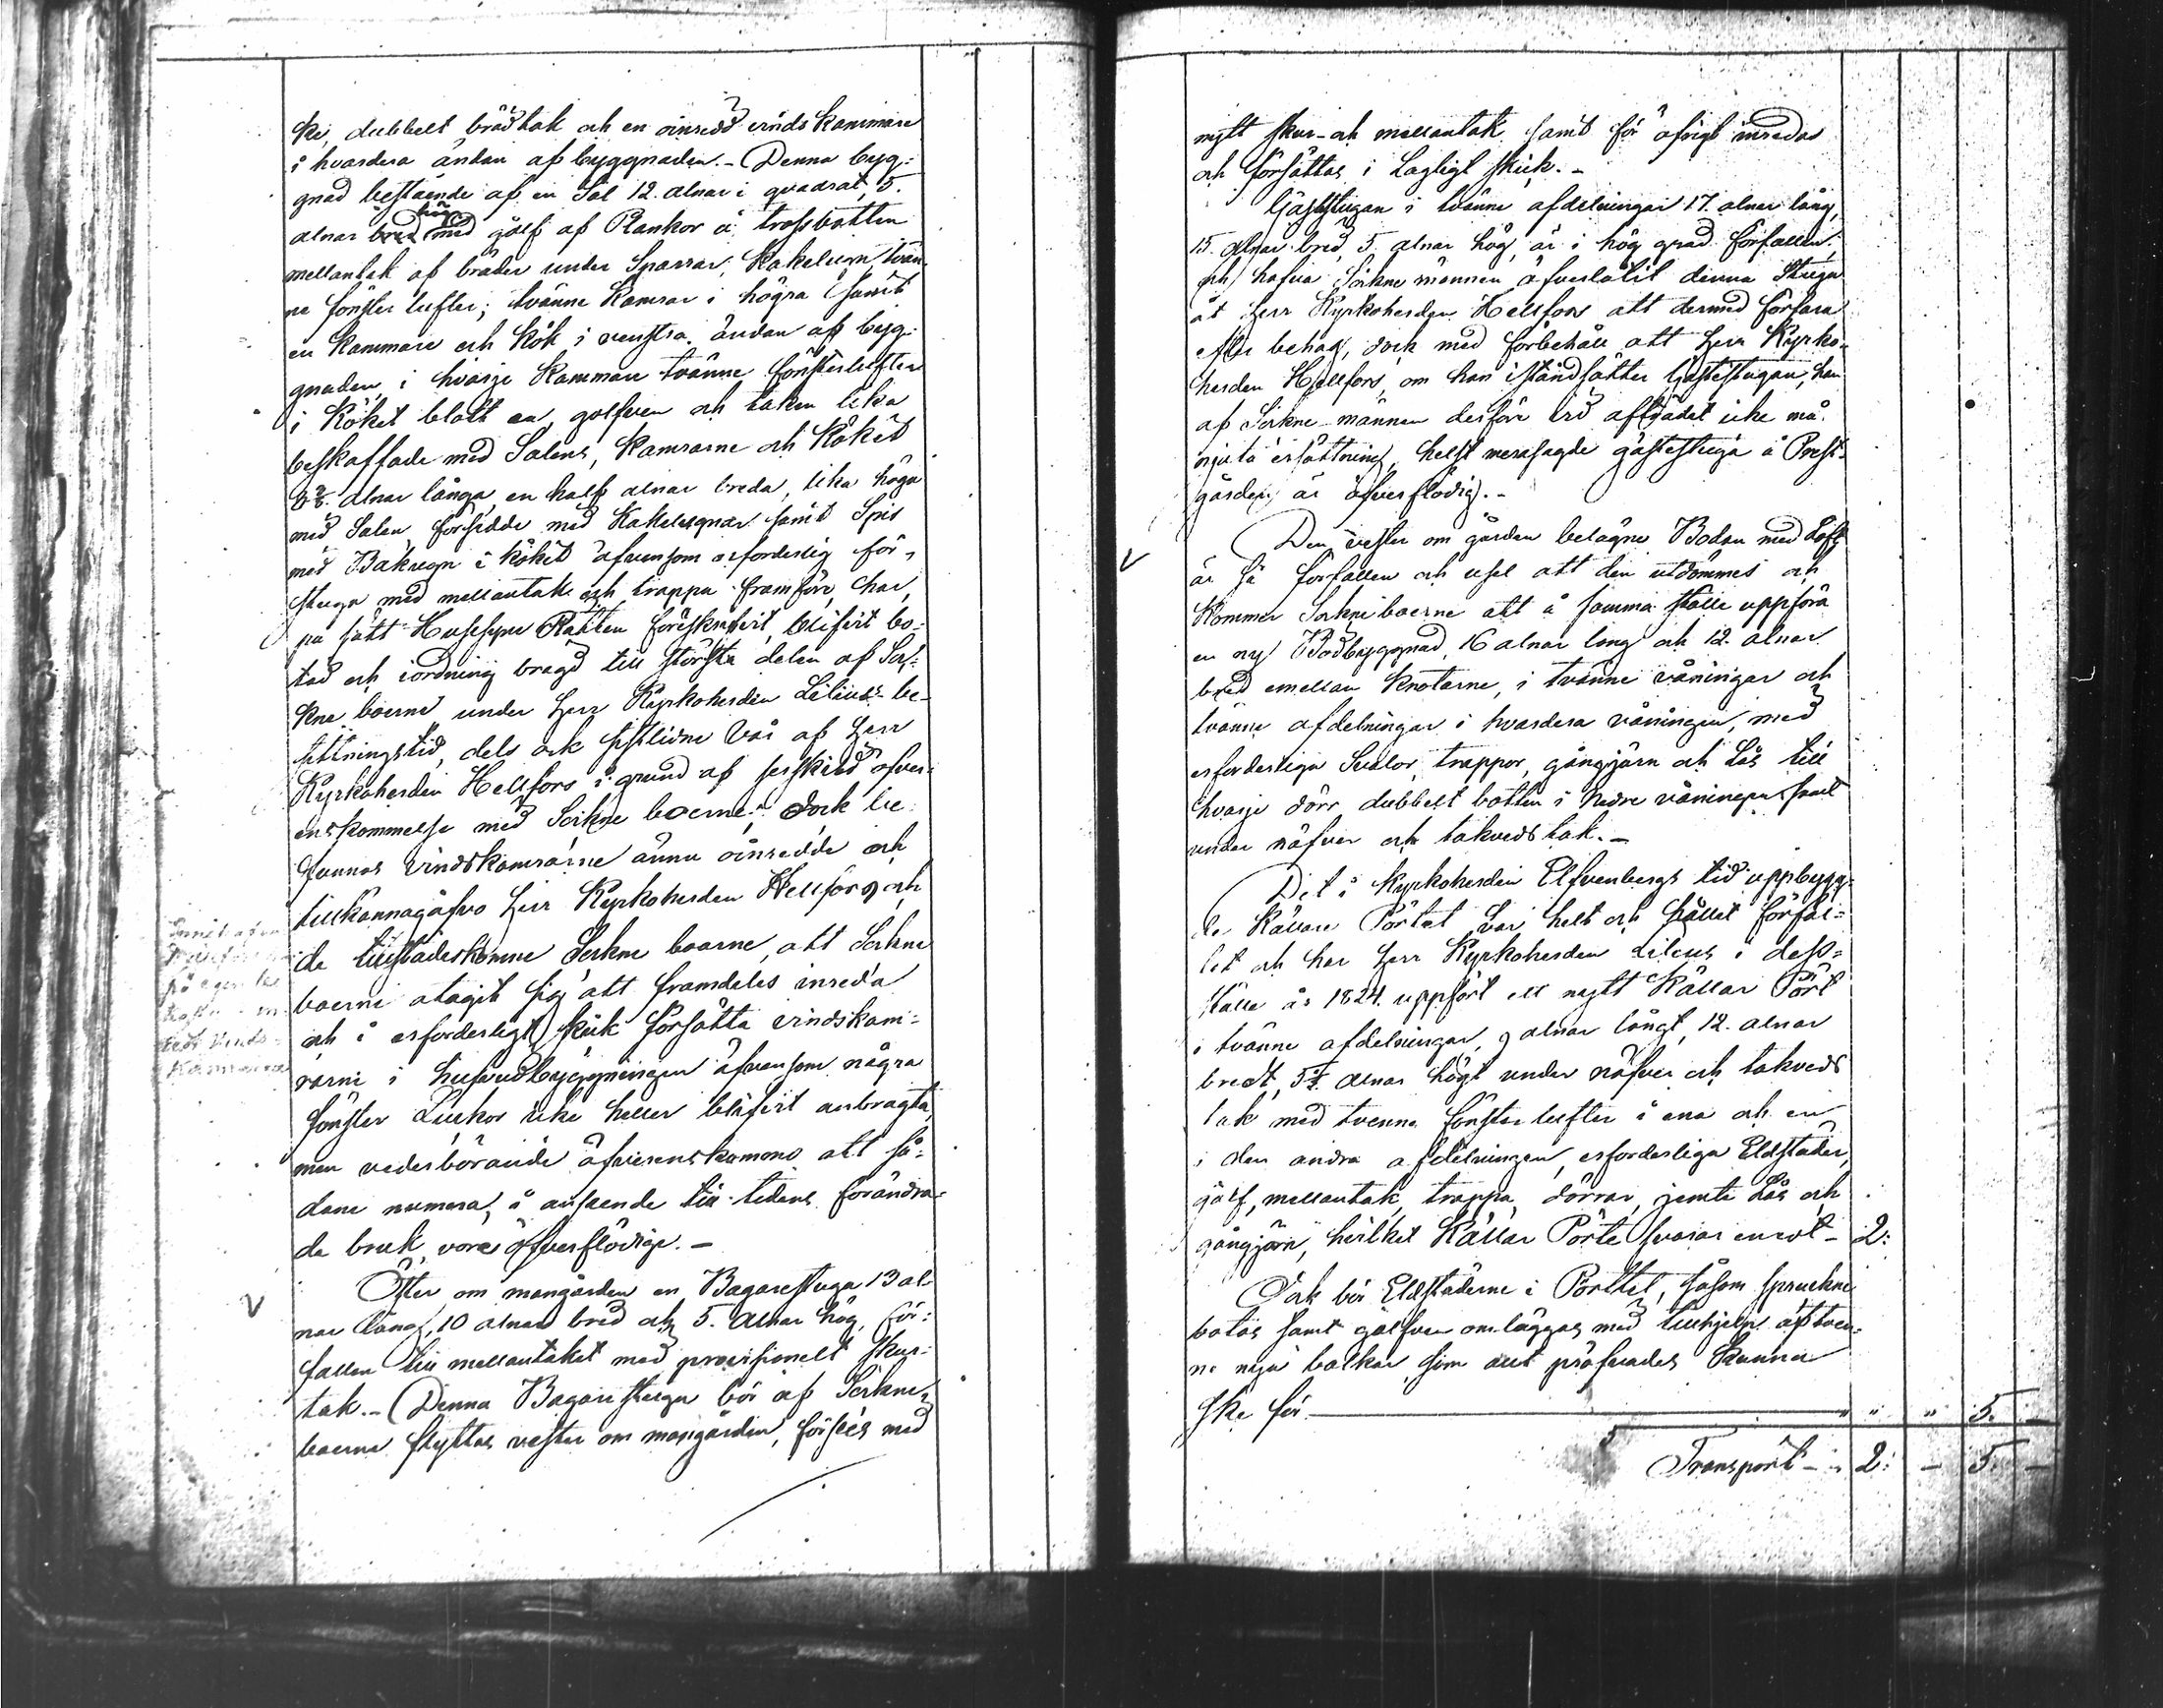 ke dubbelt brädtak och en oinredd vinds kammare
i hvardera ändan af byggnaden. - Denna byg-
gnad bestående af en Sal 12. alnar i quadrat, 5.
alnar hög med golf af Plankor å trossbotten
mellantak af bräder under Sparrar, Kakelugn, tvän-
ne fönster lufter; tvänne Kamrar i högra samt
en Kammare och Kök i venstra ändan af byg-
gnaden, i hvarje Kammare tvänne fönsterlufter
i Köket blott en, golfven och taken lika
beskaffade med Salens, Kamrarne och Köket
alnar långa, en half alnar breda, lika höga
med Salen, försedde med Kakelugnar samt Spis
med Bakugn i köket äfvensom erforderlig för-
stuga med mellantak och trappa framföre, har,
på sätt Husesyns Rätten föreskrifvit, blifvit bo-
tad och iordning bragd till största delen af Sok-
kne boerne under Herr Kyrkoherden Lilius's be-
sittningstid, dels ock sistlidne Vår af Herr
Kyrkoherden Hellfors i grund af serskild öfver-
enskommelse med Sokne boerne; dock be-
funnos Vindskamrarne ännu oinredde och
tillkännagåfvo Herr Kyrkoherden Hellfors och
de tillstädeskomne Sokne boarne, att Sokne
boerne åtagit sig att framdeles inreda
och i erforderligt skick försätta vindskam-
rarne i hufvudbyggningen äfvensom några
fönster Luckor icke heller blifvit anbragta,
men vederbörande öfverenskommo att så-
dane numera, i anseende till tidens förändra-
de bruk, vore öfverflödige. -
på egen be
Kamrarne
V
Öster om mangården en Bagarestuga 13 al-
nar lång, 10 alnar bred och 5. alnar hög, för-
fallen till mellantaket med provisionelt skur-
tak. - Denna Bagarestuga bör af Sokne-
boerne flyttas vester om mangården, förses med
nytt skur- och mellantak samt för öfrigt inredas
och försättas i Lagligt skick. -
Gäststugan i tvänne afdelningar 17 alnar lång,
15. alnar bred, 5. alnar hög, är i hög grad förfallen;
och hafva Sokne männen öfverlåtit denna Stuga
åt Herr Kyrkoherden Hellfors att dermed förfara
efter behag, dock med förbehåll att Herr Kyrko-
herden Hellfors, om han iståndsätter Gästestugan, han
af Sokne männen derföre vid afträdet icke må
njuta ersättning, helst merasagde gästestuga å Prest-
gården är öfverflödig. -
V
Den vester om gården belägne Boden med Loft
är så förfallen och usel att den utdömmes och
Kommer Sokneboerne att å samma ställe uppföra
en ny Bodbyggnad, 16 alnar lång och 12. alnar
bred emellan knutarne, i tvänne våningar och
tvänne afdelningar i hvardera våningen, med
erforderliga Svalor, trappor, gångjärn och Lås till
hvarje dörr dubbelt botten i Nedre våningen samt
under näfver och takveds tak. -
Det i Kyrkoherden Elfvenbergs tid uppbygg-
de Källare Pörtet var helt och hållet förfal-
let och har Herr Kyrkoherden Lilius i dess
ställe år 1824. uppfört ett nytt Källar Pört
i tvänne afdelningar, 9 alnar långt, 12. alnar
bredt, 5½ alnar högt under näfver och takveds
tak med tvenne fönster lufter i ena och en
i den andra afdelningen, erforderliga Eldstäder,
golf, mellantak, trappa, dörrar, jemte Lås och
gångjärn, hvilket Källar Pörte svarar emot - 2:
Dock bör Eldstäderne i Pörttet, såsom spruckne
botas samt golfven omläggas med tillhjelp af tven-
ne nya balkar, som allt pröfvades kunna
ske för " " 5. -
Transport - 2: - 5. -